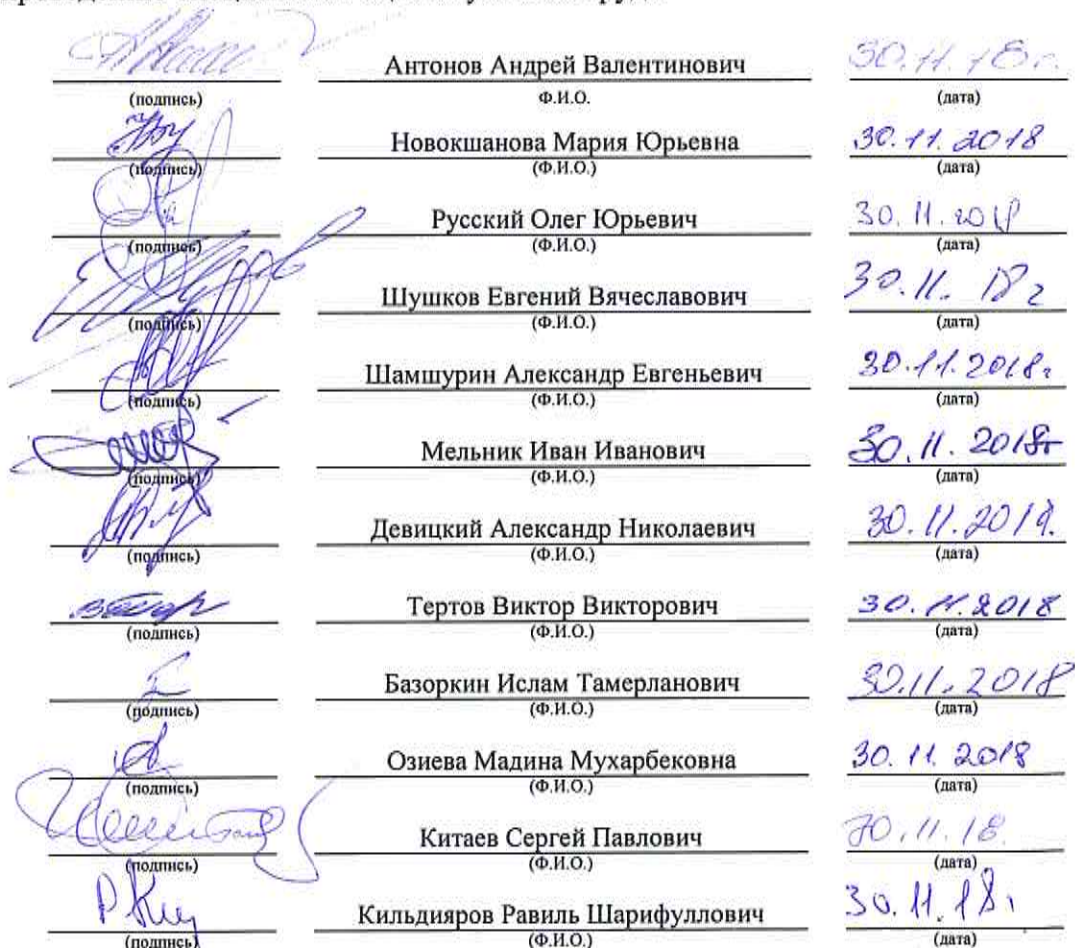 Антонов Андрей Валентинович 30.11.18г.
(подпись) Ф.И.О. (дата)
Новокшанова Мария Юрьевна 30.11.2018
(подпись) (Ф.И.О.) (дата)
Русский Олег Юрьевич 30.11.2018
(подпись) (Ф.И.О.) (дата)
Шушков Евгений Вячеславович 30.11.18г
(подпись) (Ф.И.О.) (дата)
Шамшурин Александр Евгеньевич 30.11.2018г
(подпись) (Ф.И.О.) (дата)
Мельник Иван Иванович 30.11.2018г
(подпись) (Ф.И.О.) (дата)
Девицкий Александр Николаевич 30.11.2018.
(подпись) (Ф.И.О.) (дата)
Тертов Виктор Викторович 30.11.2018
(подпись) (Ф.И.О.) (дата)
Базоркин Ислам Тамерланович 30.11.2018
(подпись) (Ф.И.О.) (дата)
Озиева Мадина Мухарбековна 30.11.2018
(подпись) (Ф.И.О.) (дата)
Китаев Сергей Павлович 30.11.18.
(подпись) (Ф.И.О.) (дата)
Кильдияров Равиль Шарифуллович 30.11.18г
(подпись) (Ф.И.О.) (дата)